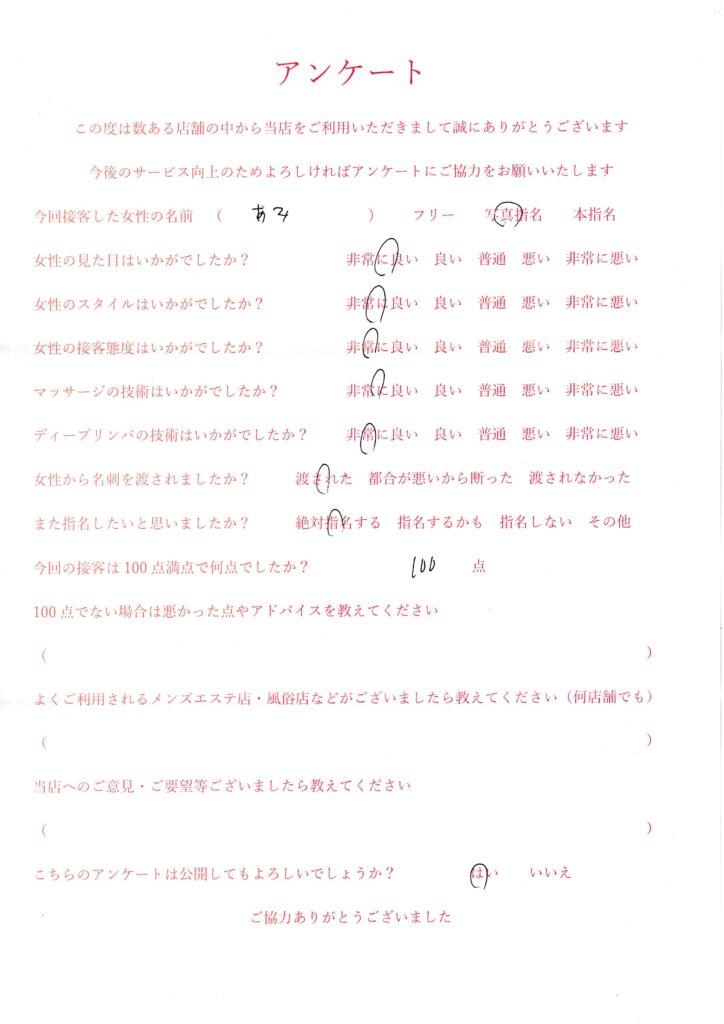 アンケート
この度は数ある店舗の中から当店をご利用いただきまして誠にありがとうございます
今後のサービス向上のためよろしければアンケートにご協力をお願いいたします
今回接客した女性の名前 （ あみ ） フリー 写真指名 本指名
女性の見た目はいかがでしたか？ 非常に良い 良い 普通 悪い 非常に悪い
女性のスタイルはいかがでしたか？ 非常に良い 良い 普通 悪い 非常に悪い
女性の接客態度はいかがでしたか？ 非常に良い 良い 普通 悪い 非常に悪い
マッサージの技術はいかがでしたか？ 非常に良い 良い 普通 悪い 非常に悪い
ディープリンパの技術はいかがでしたか？ 非常に良い 良い 普通 悪い 非常に悪い
女性から名刺を渡されましたか？ 渡された 都合が悪いから断った 渡されなかった
また指名したいと思いましたか？ 絶対指名する 指名するかも 指名しない その他
今回の接客は100点満点で何点でしたか？ 100 点
100点でない場合は悪かった点やアドバイスを教えてください
（ ）
よくご利用されるメンズエステ店・風俗店などがございましたら教えてください（何店舗でも）
（ ）
当店へのご意見・ご要望等ございましたら教えてください
（ ）
こちらのアンケートは公開してもよろしいでしょうか？ はい いいえ
ご協力ありがとうございました